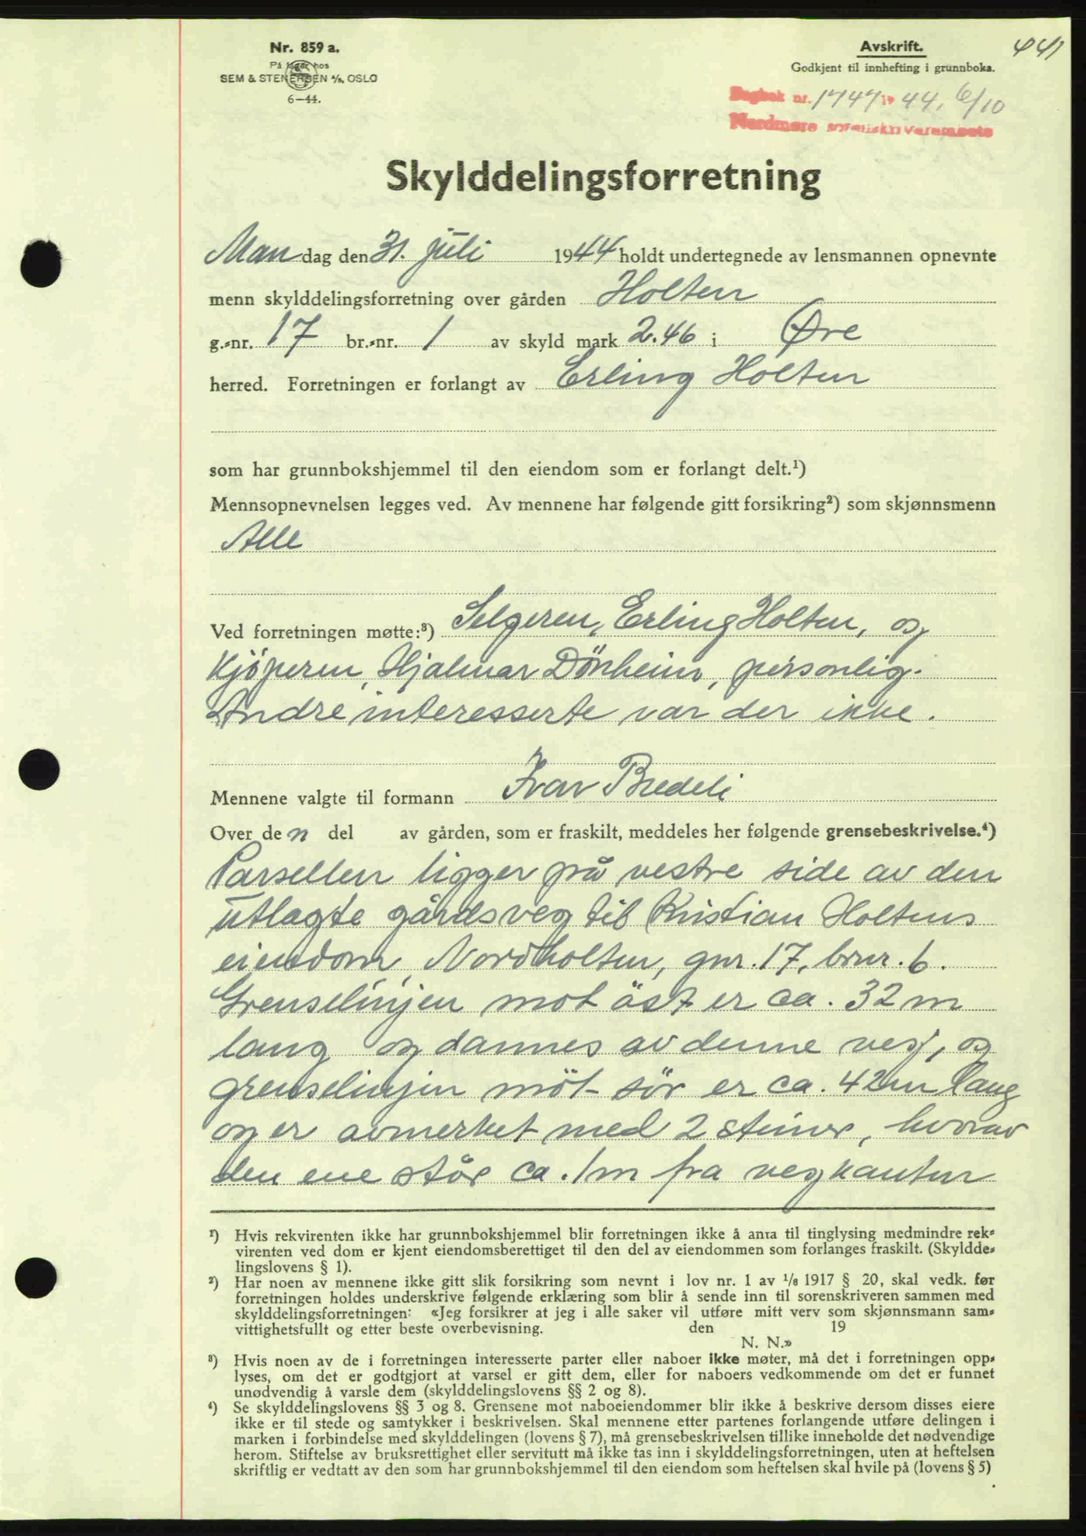 Nr. 859 a.
På lager hos
SEM & STENERSEN A/S, OSLO
6-44.
Avskrift.
Godkjent til innhefting i grunnboka.
441
Dagbok nr. 1747 19 44, 6/10
Nordmøre sorenskriverembete
Skylddelingsforretning
Mandag den 31. juli 1944 holdt undertegnede av lensmannen opnevnte
menn skylddelingsforretning over gården Holten
g.-nr. 17 br.-nr. 1 av skyld mark 2.46 i Øre
herred. Forretningen er forlangt av Erling Holten
som har grunnbokshjemmel til den eiendom som er forlangt delt.¹)
Mennsopnevnelsen legges ved. Av mennene har følgende gitt forsikring²) som skjønnsmenn
Alle
Ved forretningen møtte:³) Selgeren, Erling Holten, og
Kjøperen, Hjalmar Dønheim, personlig.
Andre interesserte var der ikke.
Mennene valgte til formann Ivar Bredeli
Over den del av gården, som er fraskilt, meddeles her følgende grensebeskrivelse.⁴)
Parsellen ligger på vestre side av den
utlagte gårdsveg til Kristian Holtens
eiendom, Nordholten, gnr. 17, brnr. 6.
Grenselinjen mot öst er ca. 32 m
lang og dannes av denne veg, og
grenselinjen möt sör er ca. 42 m lang
og er avmerket med 2 steiner, hvorav
den ene står ca. 1 m fra vegkanten
¹) Hvis rekvirenten ikke har grunnbokshjemmel blir forretningen ikke å anta til tinglysing medmindre rek-
virenten ved dom er kjent eiendomsberettiget til den del av eiendommen som forlanges fraskilt. (Skyldde-
lingslovens § 1).
²) Har noen av mennene ikke gitt slik forsikring som nevnt i lov nr. 1 av 1/6 1917 § 20, skal vedk. før
forretningen holdes underskrive følgende erklæring som blir å sende inn til sorenskriveren sammen med
skylddelingsforretningen: «Jeg forsikrer at jeg i alle saker vil utføre mitt verv som skjønnsmann sam-
vittighetsfullt og etter beste overbevisning. den 19
N. N.»
³) Hvis noen av de i forretningen interesserte parter eller naboer ikke møter, må det i forretningen opp-
lyses, om det er godtgjort at varsel er gitt dem, eller for naboers vedkommende om det er funnet
unødvendig å varsle dem (skylddelingslovens §§ 2 og 8).
⁴) Se skylddelingslovens §§ 3 og 8. Grensene mot naboeiendommer blir ikke å beskrive dersom disses eiere
ikke er til stede og samtykker i beskrivelsen. Skal mennene etter partenes forlangende utføre delingen i
marken i forbindelse med skylddelingen (lovens § 7), må grensebeskrivelsen tillike inneholde det nødvendige
herom. Stiftelse av bruksrettighet eller servitutt må ikke tas inn i skylddelingsforretningen, uten at heftelsen
skriftlig er vedtatt av den som har grunnbokshjemmel til den eiendom som heftelsen skal hvile på (lovens § 5)